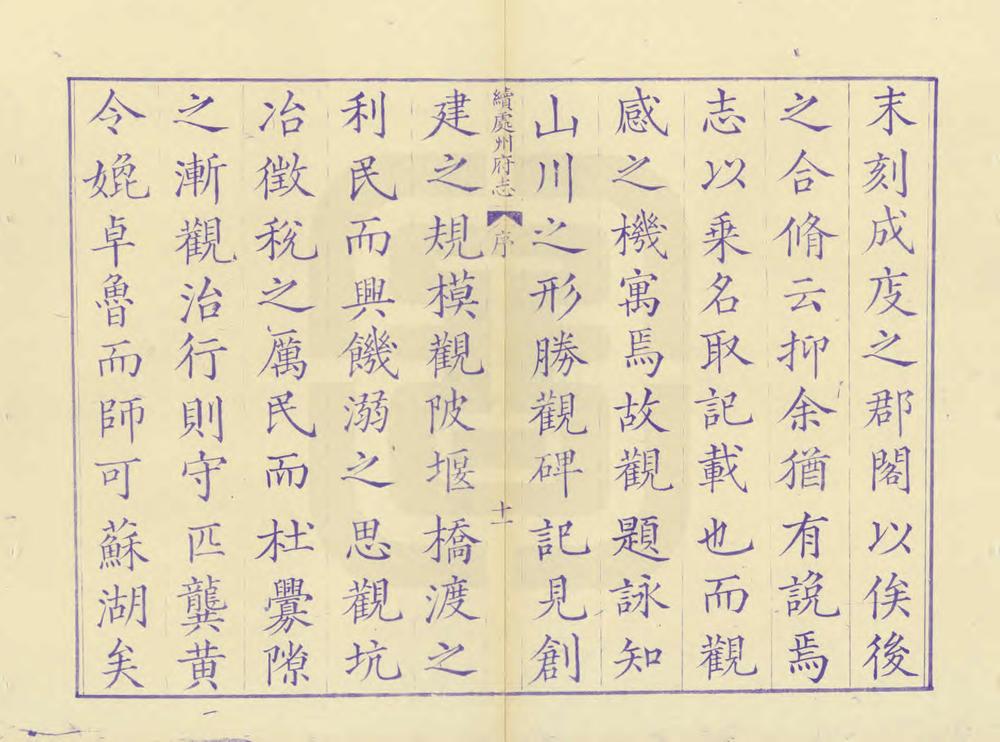 末刻成庋之郡閣以俟後
之合脩云抑余猶有說焉
志以乗名取記載也而觀
感之機寓焉故觀題詠知
山川之形勝觀碑記見創
續處州府志
序
十一
建之規模觀陂堰橋渡之
利民而興饑溺之思觀坑
冶徴稅之厲民而杜釁隙
之漸觀治行則守匹龔黄
令娩卓魯而師可蘇湖矣